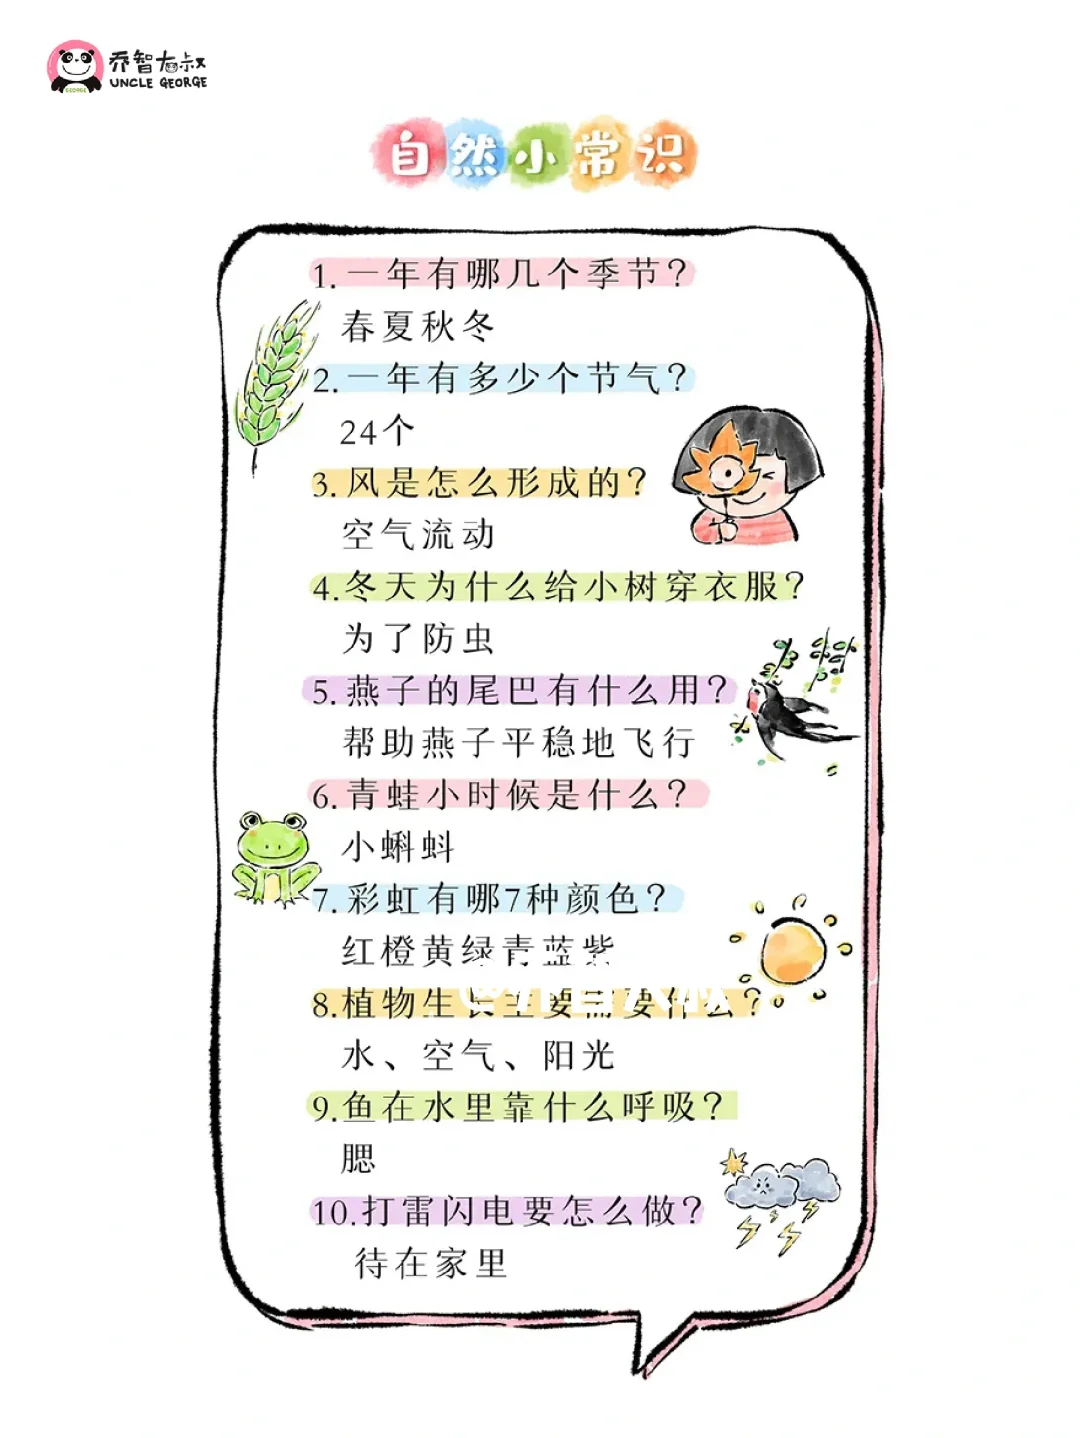 乔智大叔
UNCLE GEORGE
GEORGE
自然小常识
1.一年有哪几个季节？
春夏秋冬
2.一年有多少个节气？
24个
3.风是怎么形成的？
空气流动
4.冬天为什么给小树穿衣服？
为了防虫
5.燕子的尾巴有什么用？
帮助燕子平稳地飞行
6.青蛙小时候是什么？
小蝌蚪
7.彩虹有哪7种颜色？
红橙黄绿青蓝紫
@乔智大叔
8.植物生长主要需要什么？
水、空气、阳光
9.鱼在水里靠什么呼吸？
腮
10.打雷闪电要怎么做？
待在家里